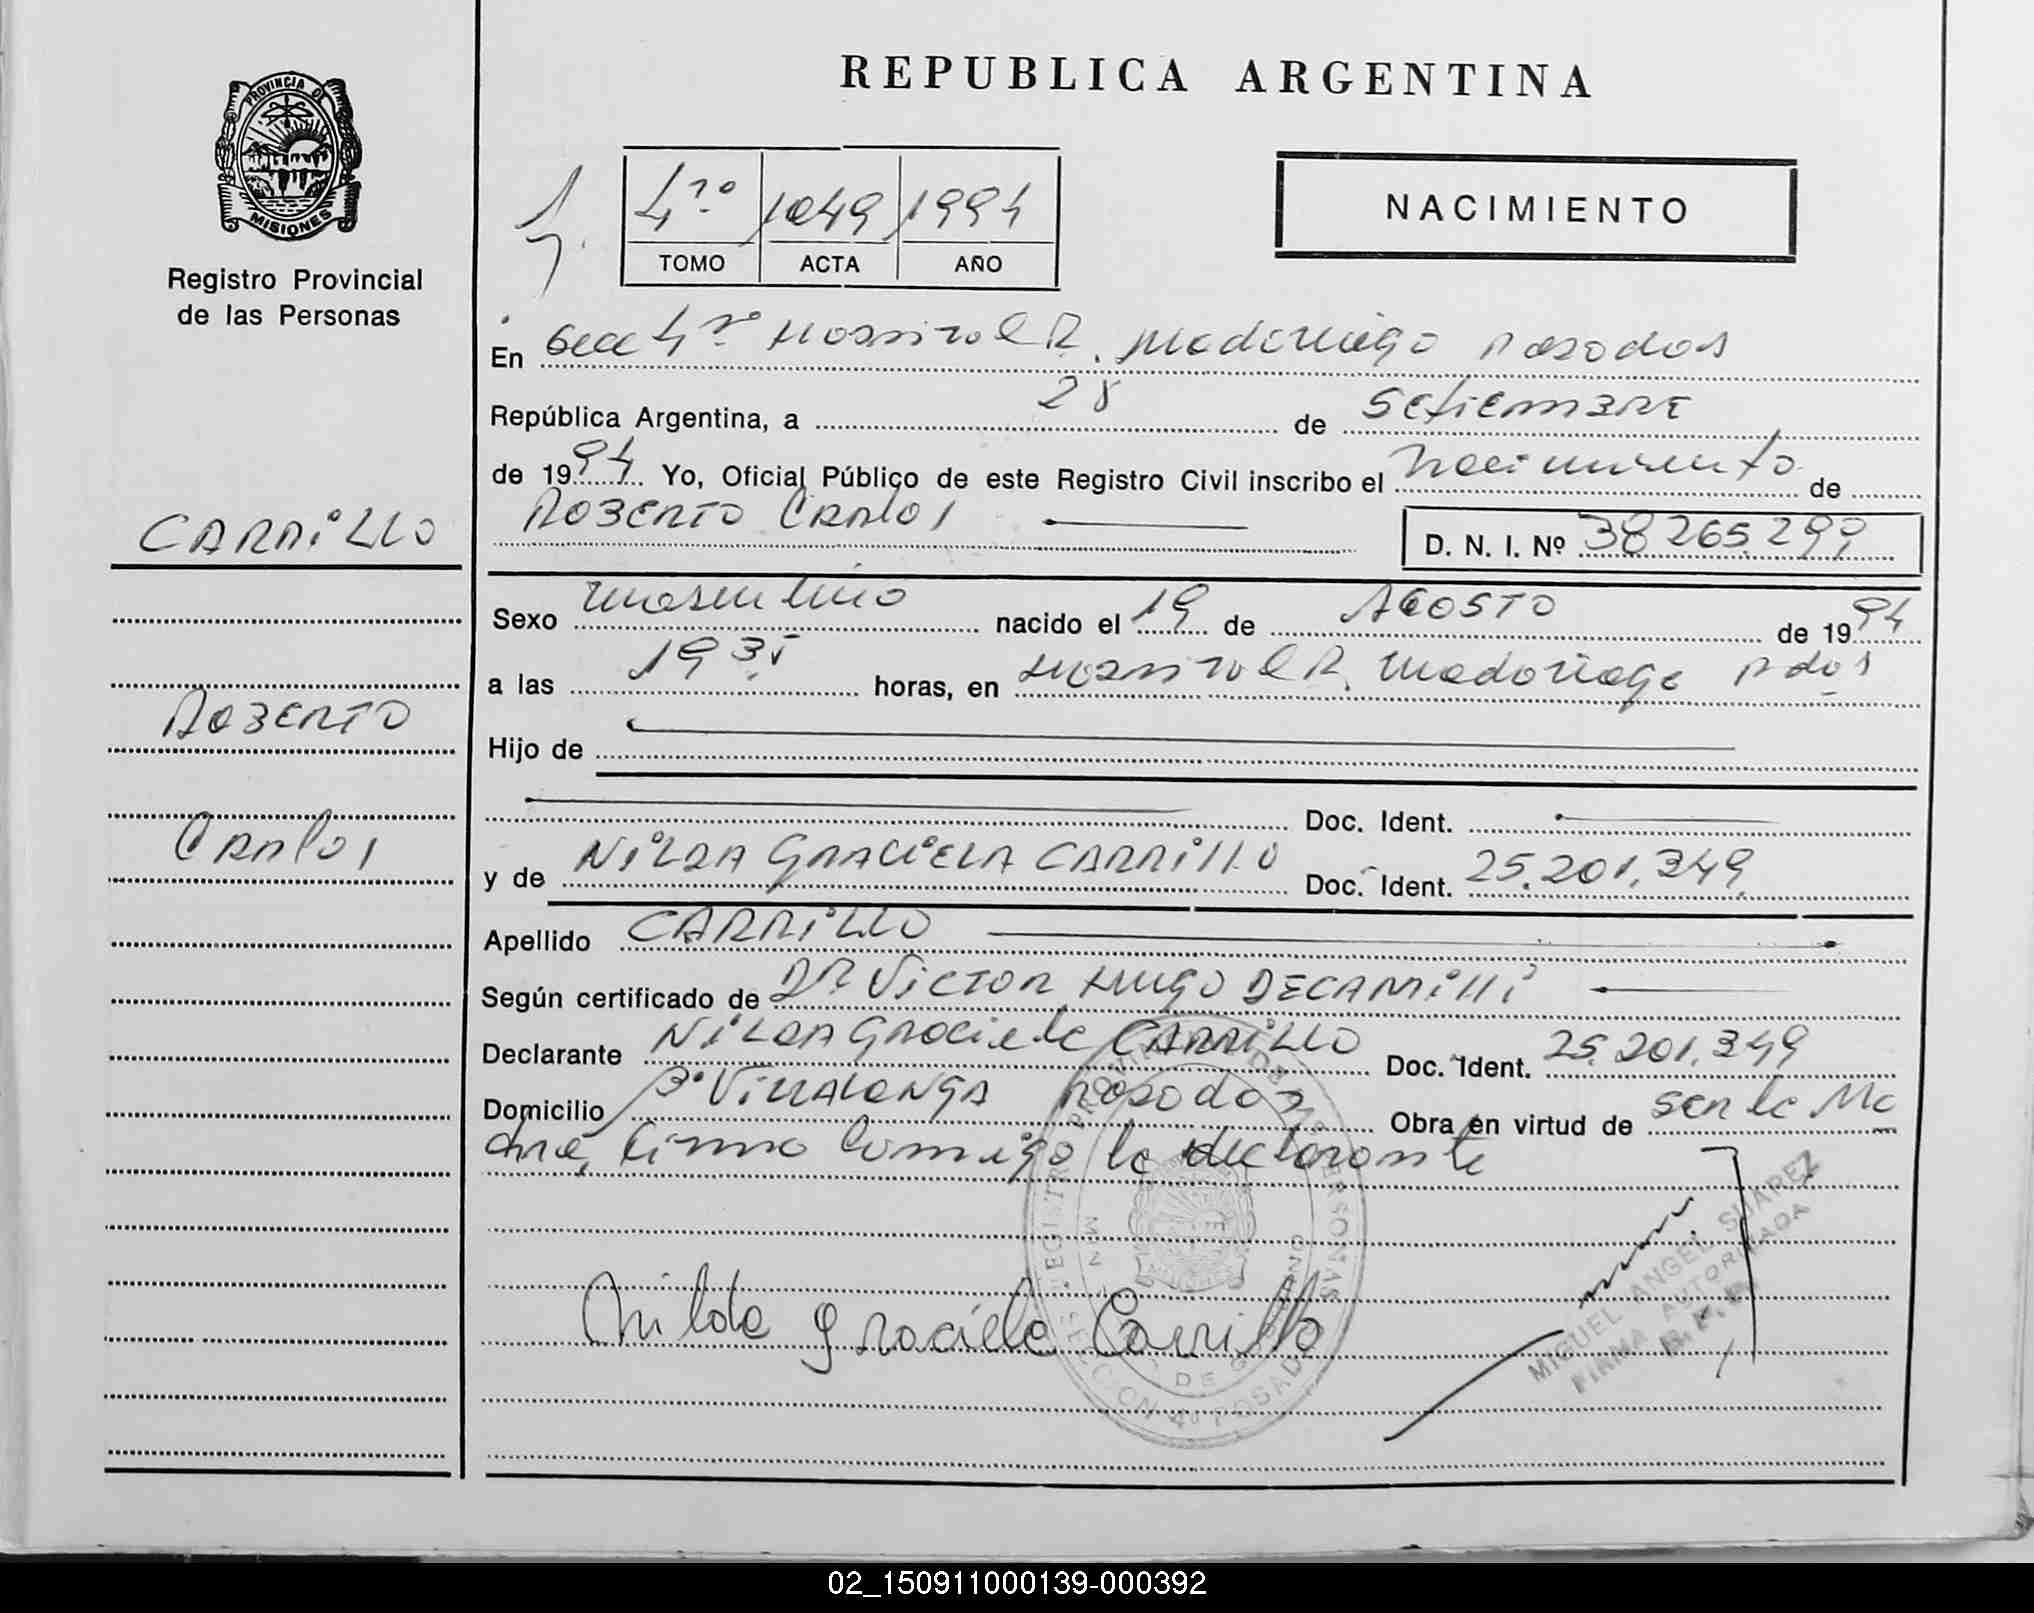 REPUBLICA ARGENTINA
PROVINCIA DE
MISIONES
Registro Provincial
de las Personas
4ro 1049 1994
TOMO ACTA AÑO
NACIMIENTO
En Secc 4ta Hospital R. Madariaga Posadas
República Argentina, a 28 de Setiembre
de 1994 Yo, Oficial Público de este Registro Civil inscribo el nacimiento de
Roberto Carlos
D. N. I. Nº 38265.299
CARRILLO
ROBERTO
Carlos
Sexo masculino nacido el 19 de AGOSTO de 1994
a las horas, en Hospital R. Madariaga Pdas
Hijo de
Doc. Ident.
y de NILDA GRACIELA CARRILLO Doc. Ident. 25.201.349
Apellido CARRILLO
Según certificado de Dr VICTOR HUGO DECAMILLI
Declarante NILDA Graciela CARRILLO Doc. Ident. 25.201.349
Domicilio Bº VILLALONGA Posadas Obra en virtud de ser la Ma
dre, firma conmigo la declarante
Nilda Graciela Carrillo
MIGUEL ANGEL SUAREZ
FIRMA AUTORIZADA
R.P.P.
SECCION 4º POSADAS
02_150911000139-000392